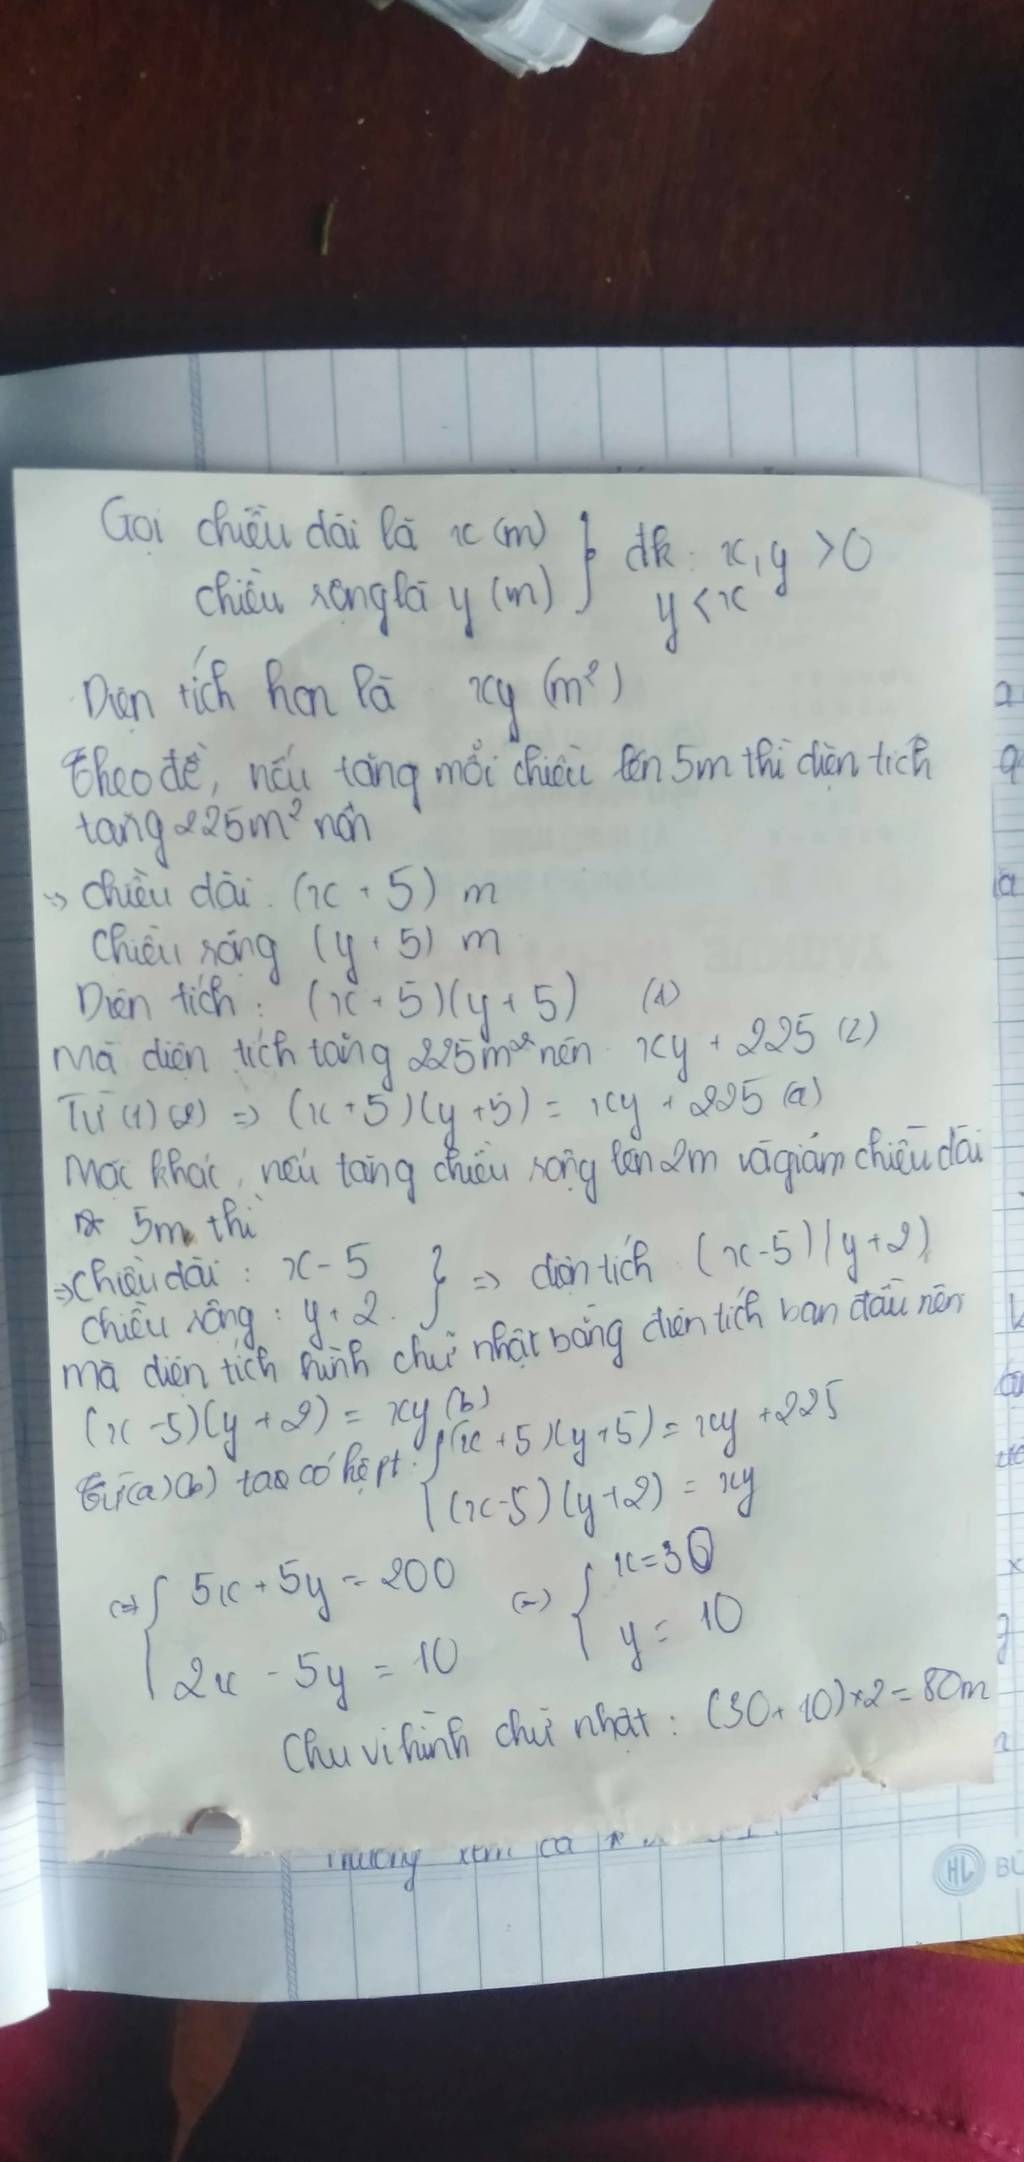 Gọi chiều dài là x (m) } đk: x, y > 0
chiều rộng là y (m) y < x
Diện tích hcn là xy (m²)
theo đề, nếu tăng mỗi chiều lên 5m thì diện tích
tăng 225m² nên
=> chiều dài: (x + 5) m
Chiều rộng (y + 5) m
Diện tích: (x + 5)(y + 5) (1)
Mà diện tích tăng 225m² nên xy + 225 (2)
Từ (1) (2) => (x + 5)(y + 5) = xy + 225 (a)
Mặc khác, nếu tăng chiều rộng lên 2m và giảm chiều dài
5m thì
=> chiều dài: x - 5 } => diện tích (x - 5)(y + 2)
chiều rộng: y + 2
mà diện tích hình chữ nhật bằng diện tích ban đầu nên
(x - 5)(y + 2) = xy (b)
từ (a) (b) ta có hệ pt: { (x + 5)(y + 5) = xy + 225
(x - 5)(y + 2) = xy
(=) { 5x + 5y = 200 (=) { x = 30
2x - 5y = 10 y = 10
Chu vi hình chữ nhật: (30 + 10) × 2 = 80m
xem ca
HL